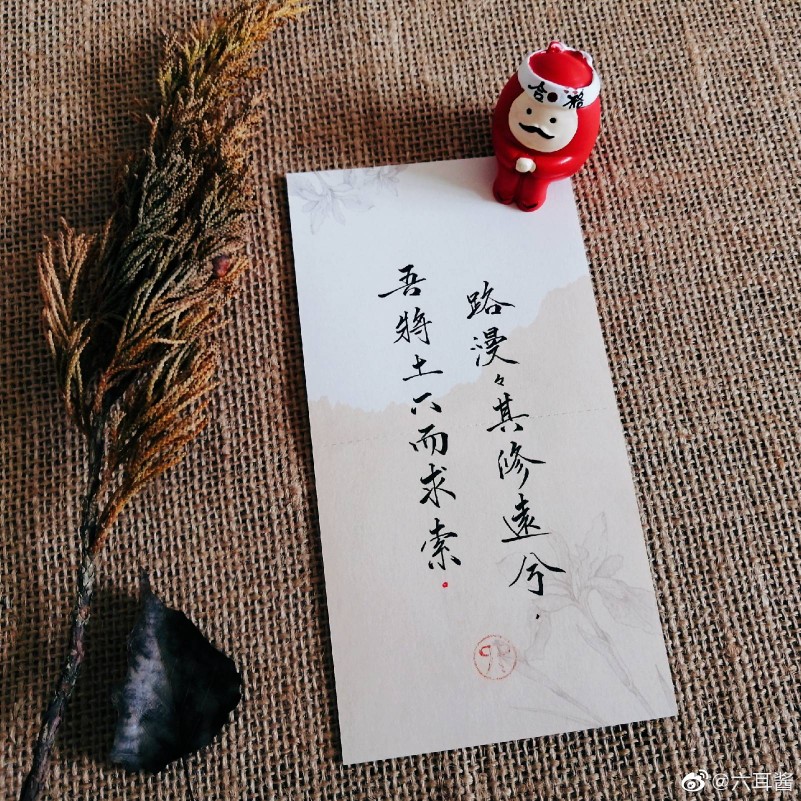 合格
路漫々其修遠兮，
吾將上下而求索。
@六耳酱